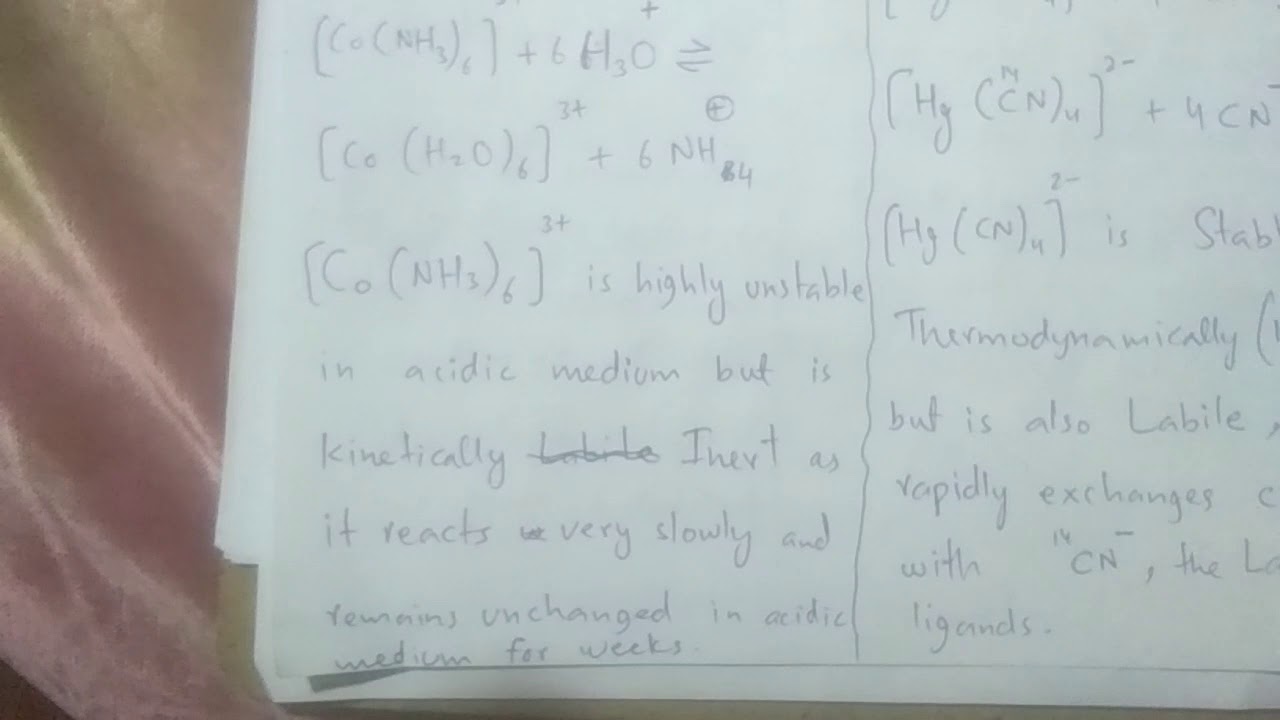 [Co(NH₃)₆] + 6 H₃O⁺ ⇌
[Co (H₂O)₆]³⁺ + 6 NH₄⊕
[Co (NH₃)₆]³⁺ is highly unstable
in acidic medium but is
kinetically Labile Inert as
it reacts very slowly and
remains unchanged in acidic
medium for weeks.
[Hg (¹⁴CN)₄]²⁻ + 4 CN⁻
[Hg (CN)₄]²⁻ is
Thermodynamically (
but is also Labile,
rapidly exchanges
with ¹⁴CN⁻, the
ligands.